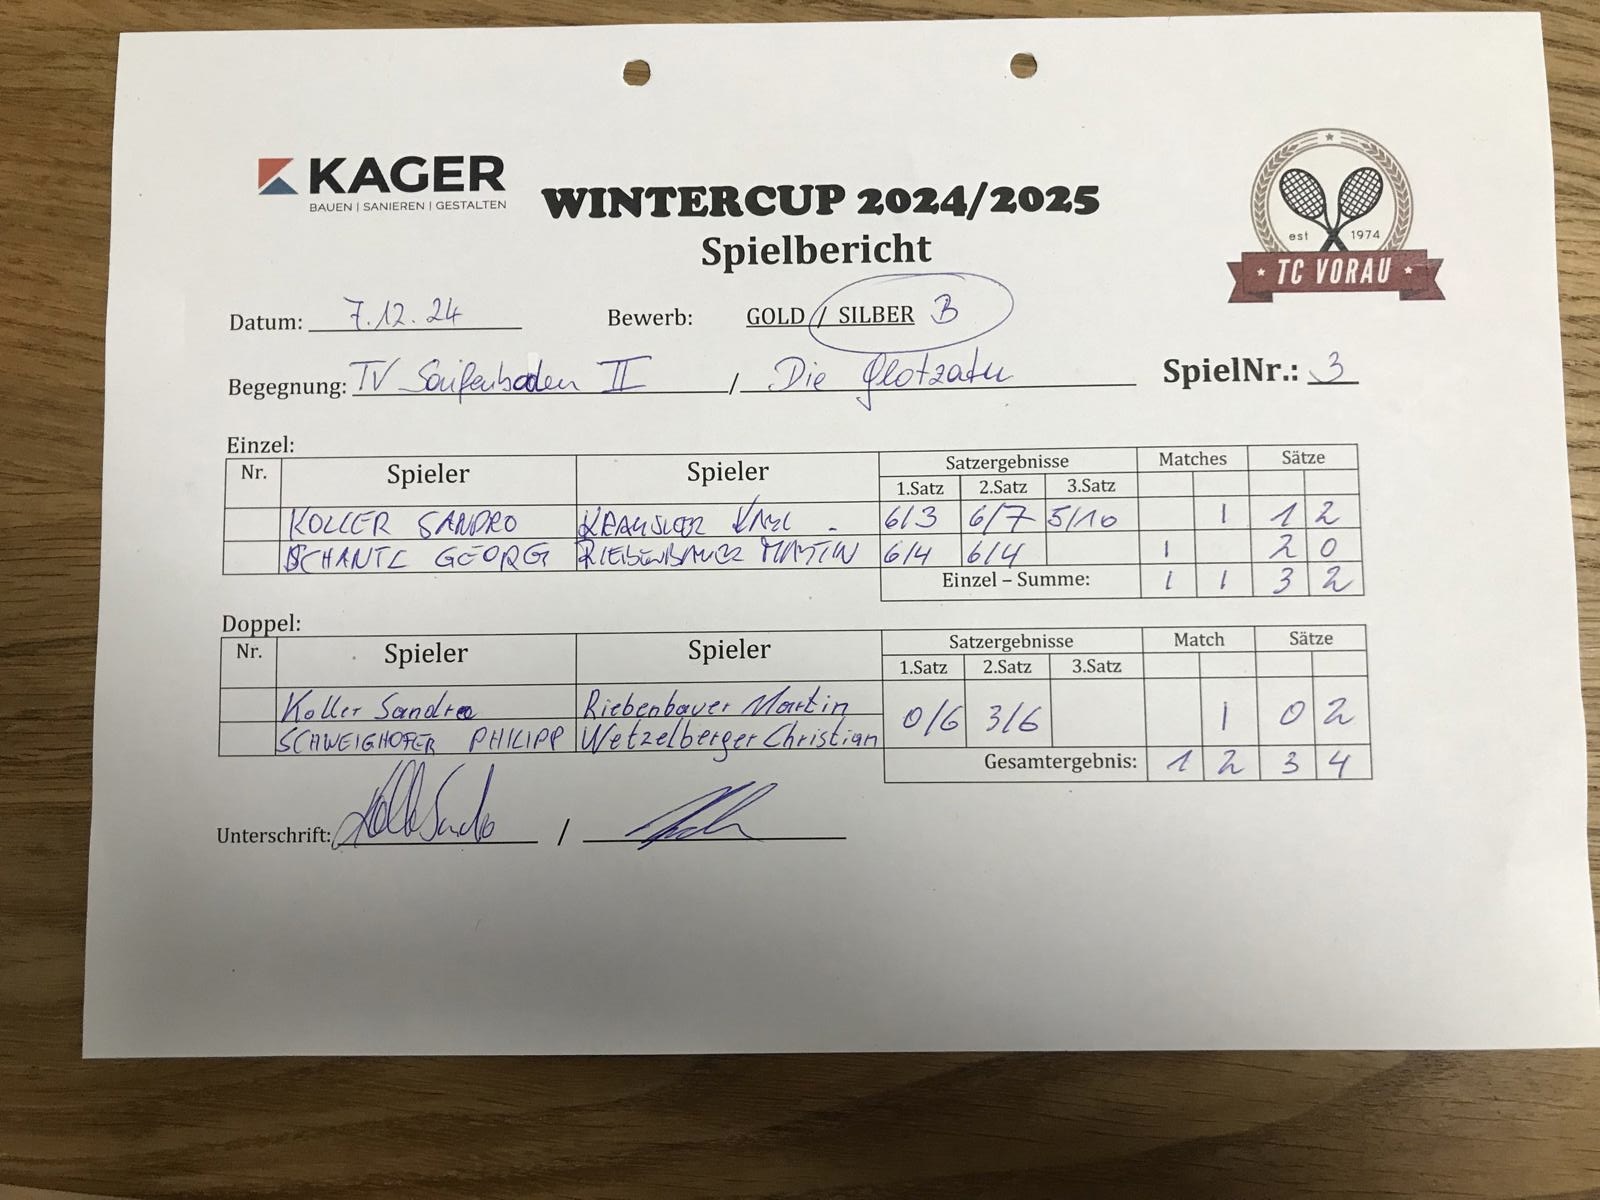 KAGER
BAUEN | SANIEREN | GESTALTEN
WINTERCUP 2024/2025
Spielbericht
est 1974
TC VORAU
Datum: 7.12.24 Bewerb: GOLD / SILBER B
Begegnung: TV Saifenboden II / Die Glotzatn SpielNr.: 3
Einzel:
Nr. Spieler Spieler Satzergebnisse Matches Sätze
1.Satz 2.Satz 3.Satz
KOLLER SANDRO 6/3 6/7 5/10 1 1 2
SCHANTL GEORG RIEBENBAUER MARTIN 6/4 6/4 1 2 0
Einzel – Summe: 1 1 3 2
Doppel:
Nr. Spieler Spieler Satzergebnisse Match Sätze
1.Satz 2.Satz 3.Satz
Koller Sandro Riebenbauer Martin 0/6 3/6 1 0 2
SCHWEIGHOFER PHILIPP Wetzelberger Christian
Gesamtergebnis: 1 2 3 4
Unterschrift: /